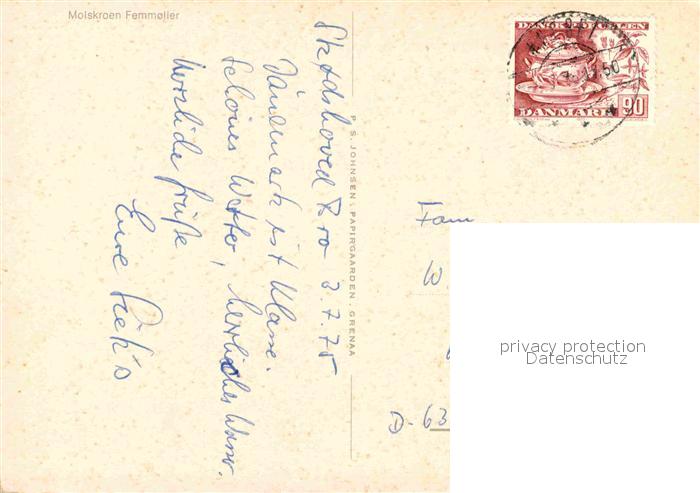 Molskroen Femmøller
Skødshoved Bro 3.7.75
Dänemark ist Klasse.
Schönes Wetter, herrliches Wasser.
Herzliche Grüße
Eure
P. S. JOHNSEN . PAPIRGAARDEN . GRENAA
DANMARK
90
Fam
W.
D-63
privacy protection
Datenschutz